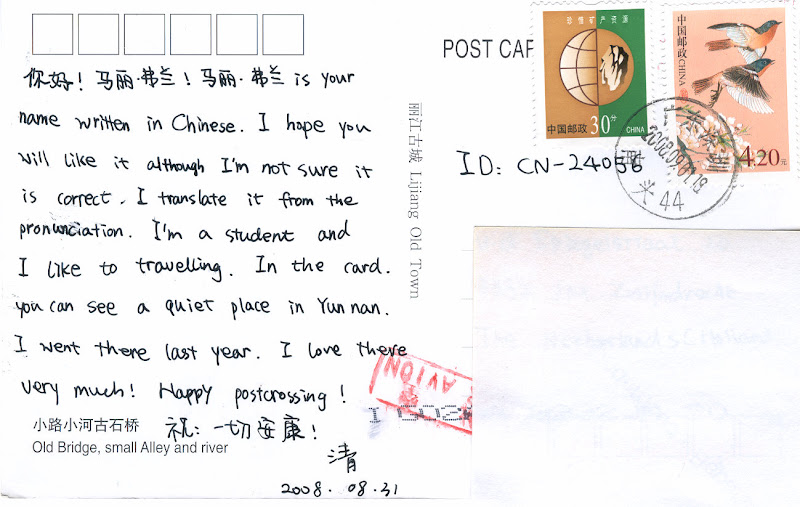 你好！马丽·弗兰！马丽·弗兰 is your
name written in Chinese. I hope you
will like it although I'm not sure it
is correct. I translate it from the
pronunciation. I'm a student and
I like to travelling. In the card.
you can see a quiet place in Yunnan.
I went there last year. I love there
very much! Happy postcrossing!
祝：一切安康！
清
2008.08.31
小路小河古石桥
Old Bridge, small Alley and river
丽江古城 Lijiang Old Town
POST CAR
珍惜矿产资源
中国邮政 30分 CHINA
中国邮政 CHINA
4.20元
广东深圳
2008.09.01.19
44
ID: CN-24056
AVION